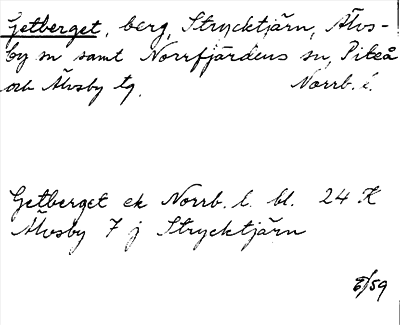 Getberget, berg, Strycktjärn, Älvs-
by sn samt Norrfjärdens sn, Piteå
och Älvsby tg. Norrb. l.
Getberget ek Norrb. l. bl. 24 K
Älvsby 7 j Strycktjärn
6/59